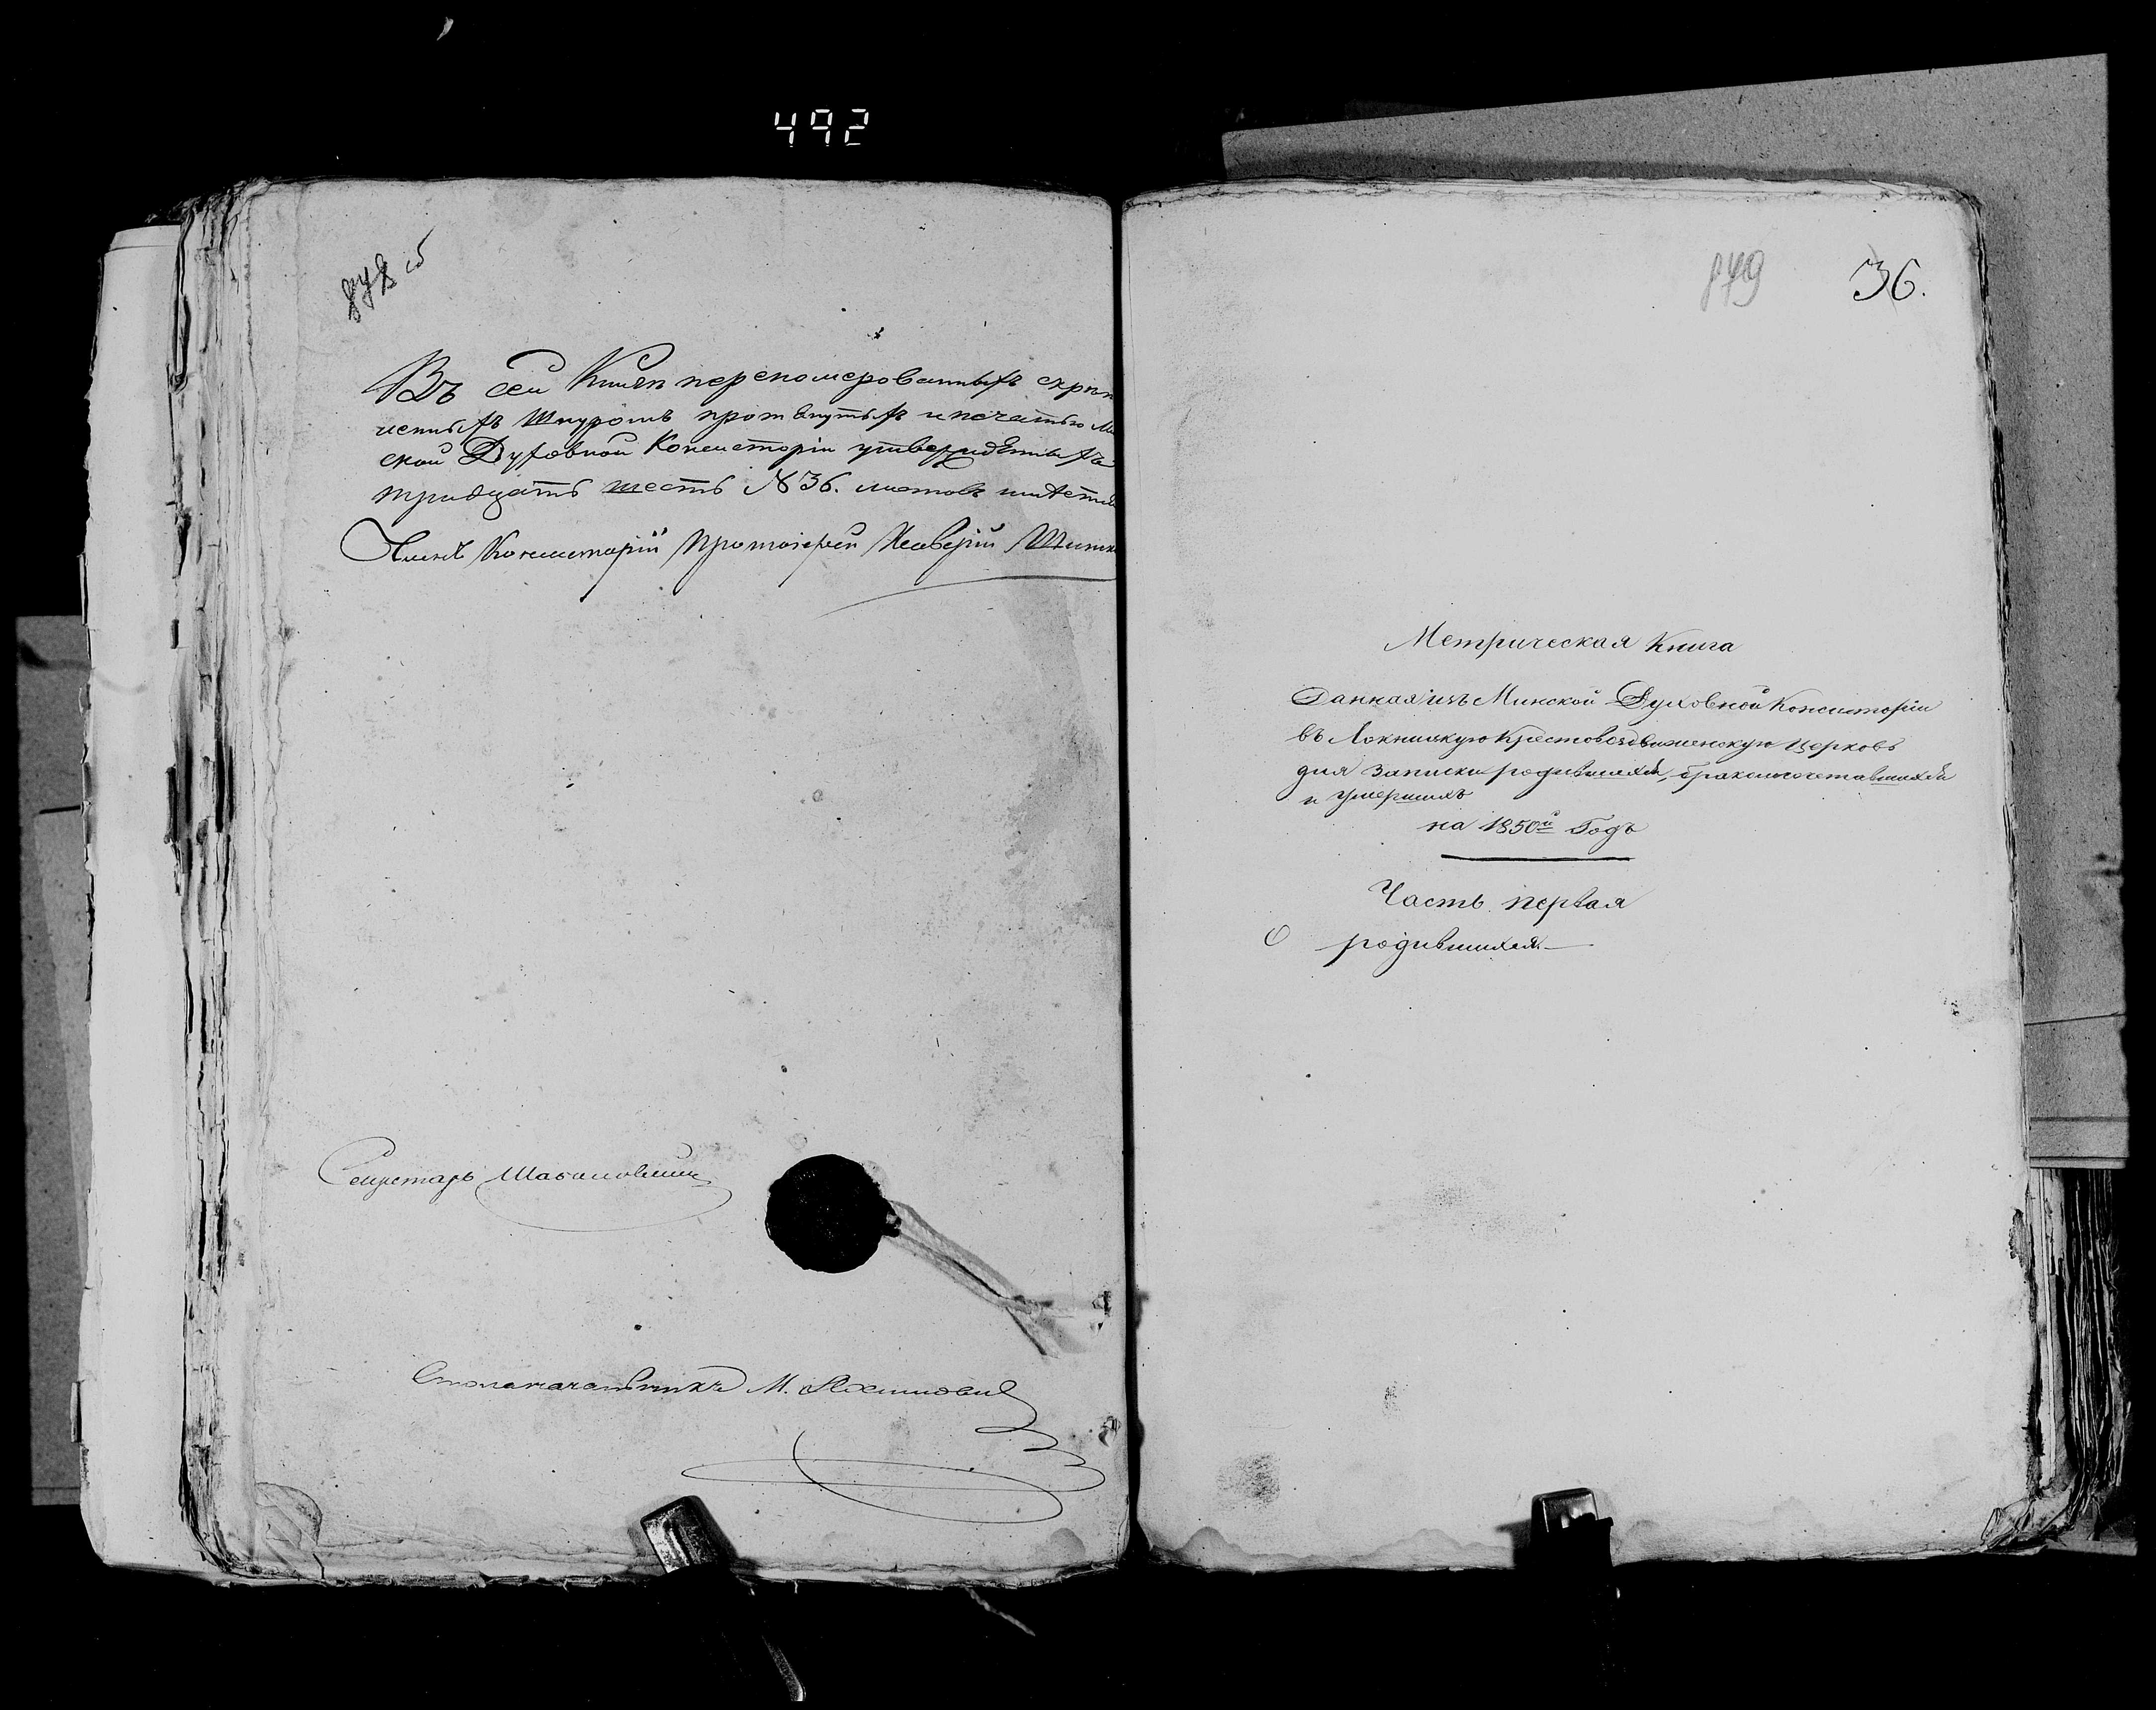 492
878 об
Въ сей Книгѣ перепомерованныхъ скрѣп
ченныхъ шнуромъ протянутыхъ и печатью Ми
ской Духовной Консисторіи утвержденныхъ
тридцать шесть №36. листовъ имѣетъ
Членъ Консисторіи Протоіерей
Секретарь
Столоначальникъ М.
879 36.
Метрическая Книга
Данная изъ Минской Духовной Консисторіи
въ Локницкую Крестовоздвиженскую Церковь
для записки родившихся, бракомъ сочетавшихся
и умершихъ
на 1850й Годъ
Часть первая
О родившихся